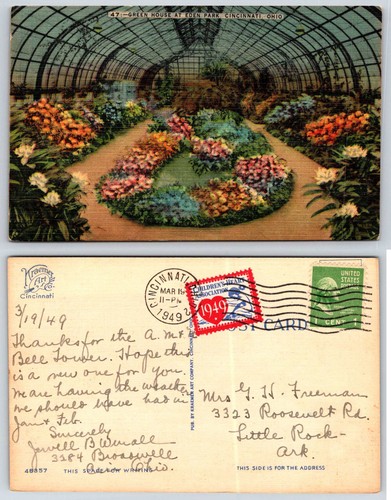 47:—GREEN HOUSE AT EDEN PARK, CINCINNATI, OHIO
Kraemer
Art
Co.
Cincinnati
CINCINNATI
MAR 1
11-PM
1949
CHILDREN'S HEART
ASSOCIATION
1949
UNITED STATES
1 CENT
POST CARD
3/19/49
Thanks for the A. M.
Bell Tower. Hope this
is a new one for you.
We are having the weather
we should have had in
Jan & Feb.
Sincerely
Jewell B
3284
Ohio.
Mrs G. H. Freeman
3323 Roosevelt Rd.
Little Rock-
Ark.
PUB. BY KRAEMER ART COMPANY, CINCINNATI,
48357
THIS SPACE FOR WRITING
THIS SIDE IS FOR THE ADDRESS